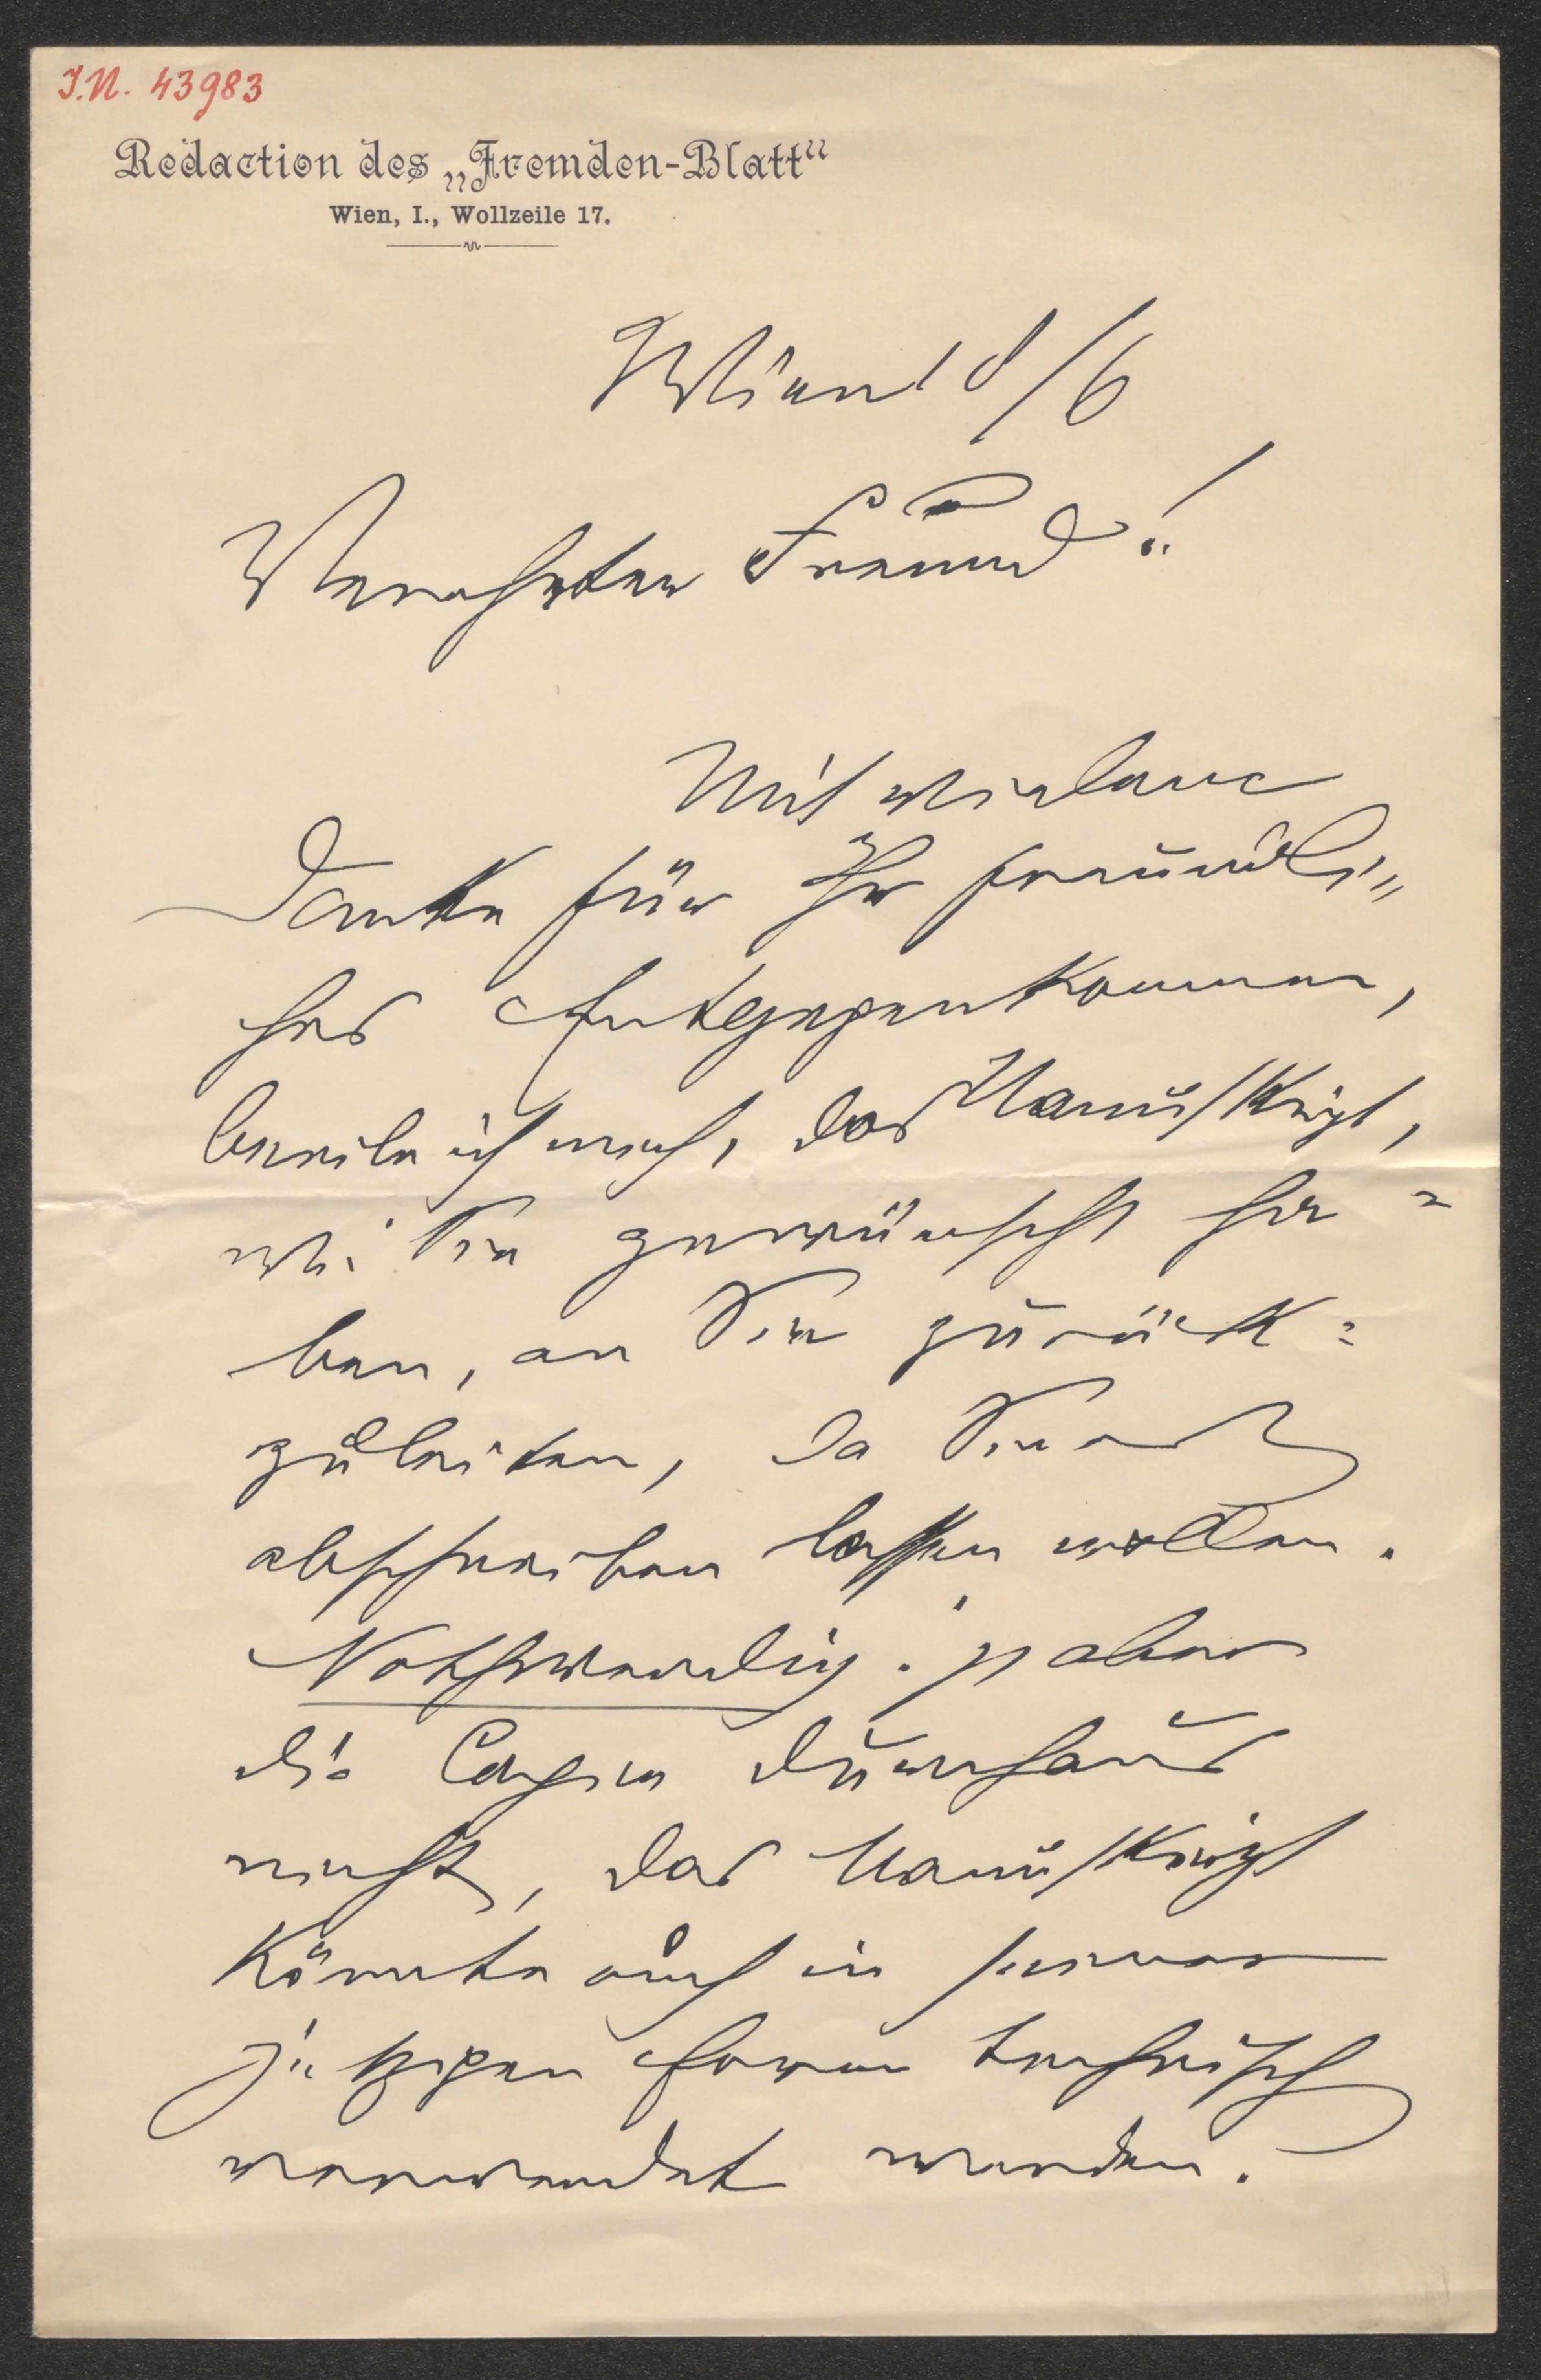 I.N. 43983
Redaction des „Fremden-Blatt“
Wien, I., Wollzeile 17.
Wien 18/6
Verehrter Freund!
Mit vielem
Danke für Ihr freundli=
ches Entgegenkommen,
beeile ich mich, das Manuskript,
wie Sie gewünscht ha=
ben, an Sie zurück=
zuleiten, da Sie es
abschreiben lassen wollen.
Nothwendig ist aber
die Copie durchaus
nicht, das Manuskript
könnte auch in seiner
jetzigen Form technisch
verwendet werden.